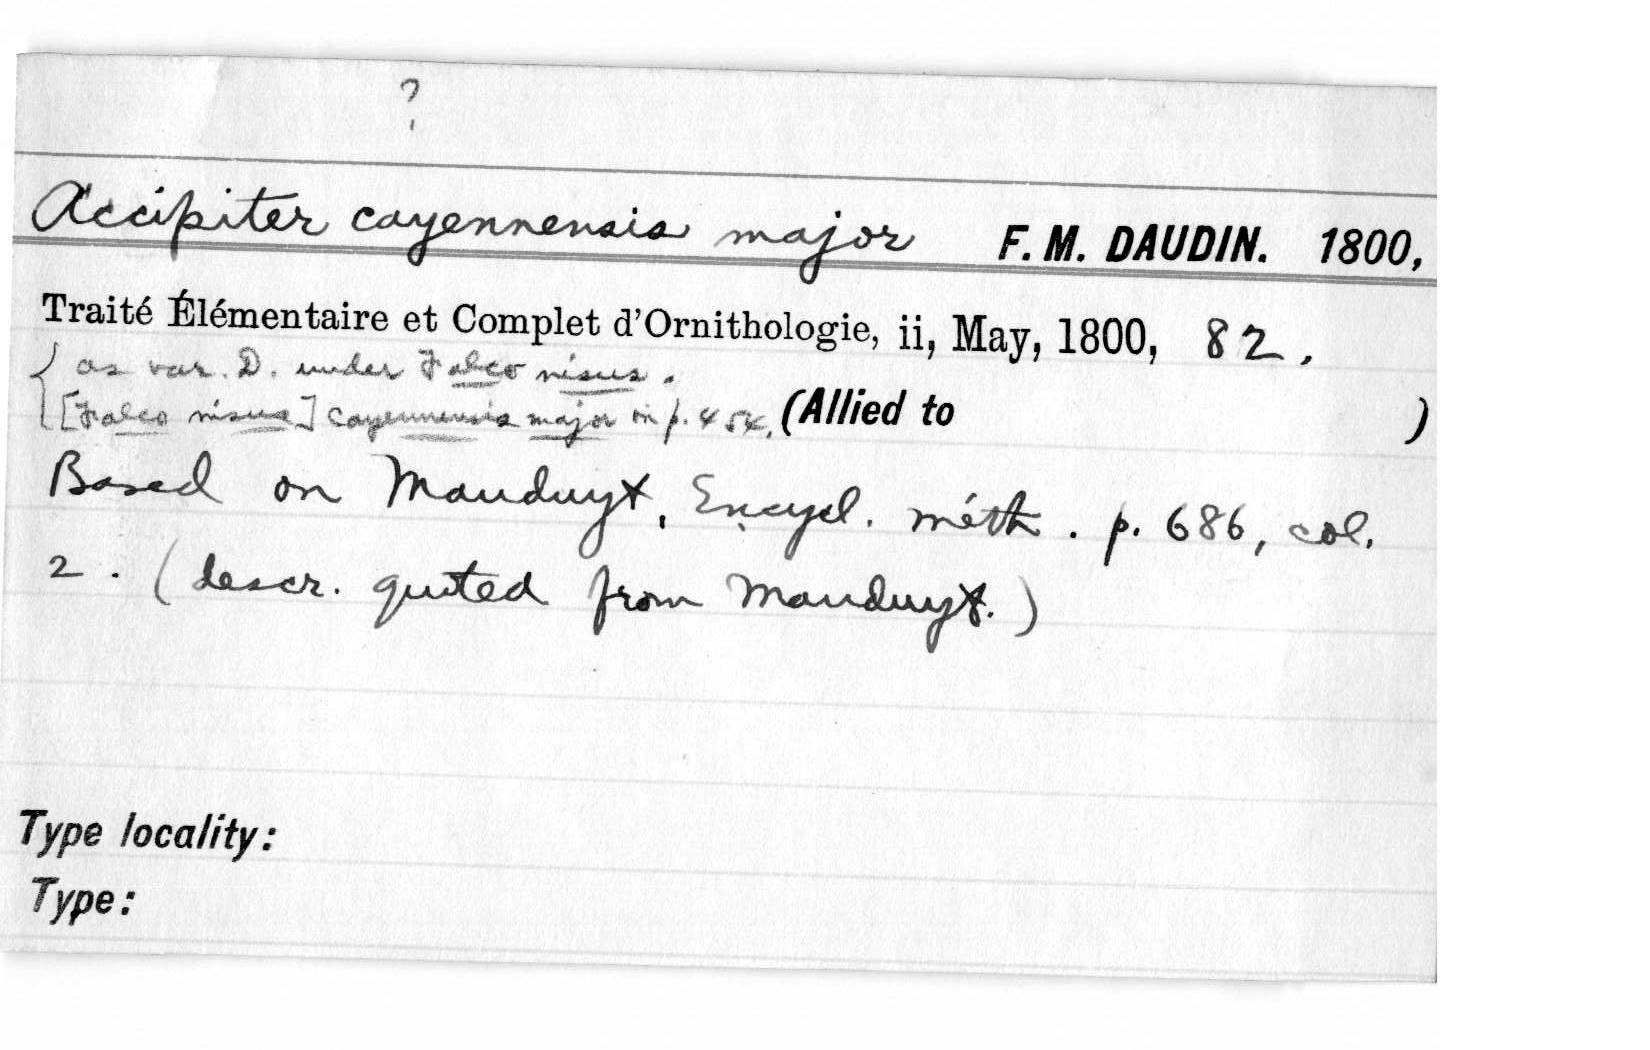 ?
Accipiter cayennensis major F. M. DAUDIN. 1800,
Traité Élémentaire et Complet d'Ornithologie, ii, May, 1800, 82.
{ as var. D. under Falco nisus.
[Falco nisus] cayennensis major in p. 454. (Allied to )
Based on Mauduyt, Encycl. méth. p. 686, col.
2. (descr. quoted from Mauduyt.)
Type locality:
Type: